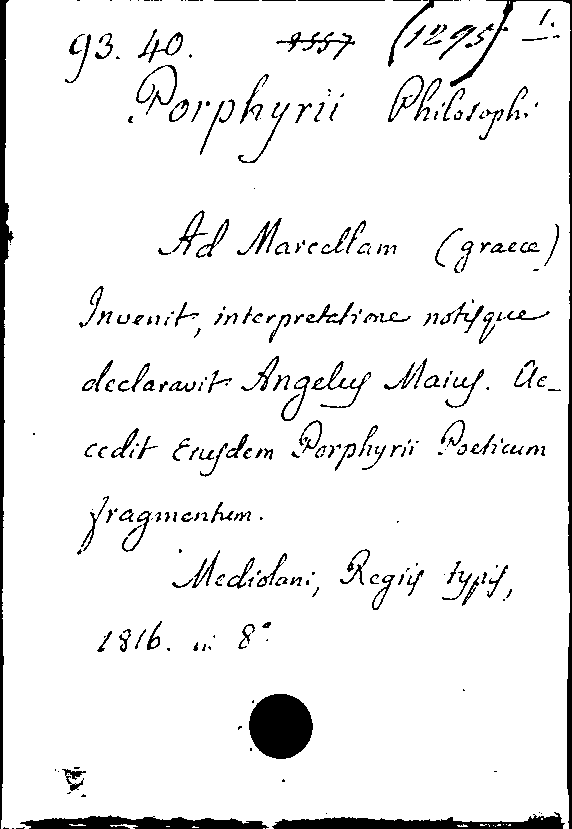 93. 40. 9557 (1295) 1.
Porphyrii Philosophi
Ad Marcellam (graece)
Invenit, interpretatione notisque
declaravit Angelus Maius. Ac-
cedit Ejusdem Porphyrii Poeticum
fragmentum.
Mediolani, Regiis typis,
1816. in 8°